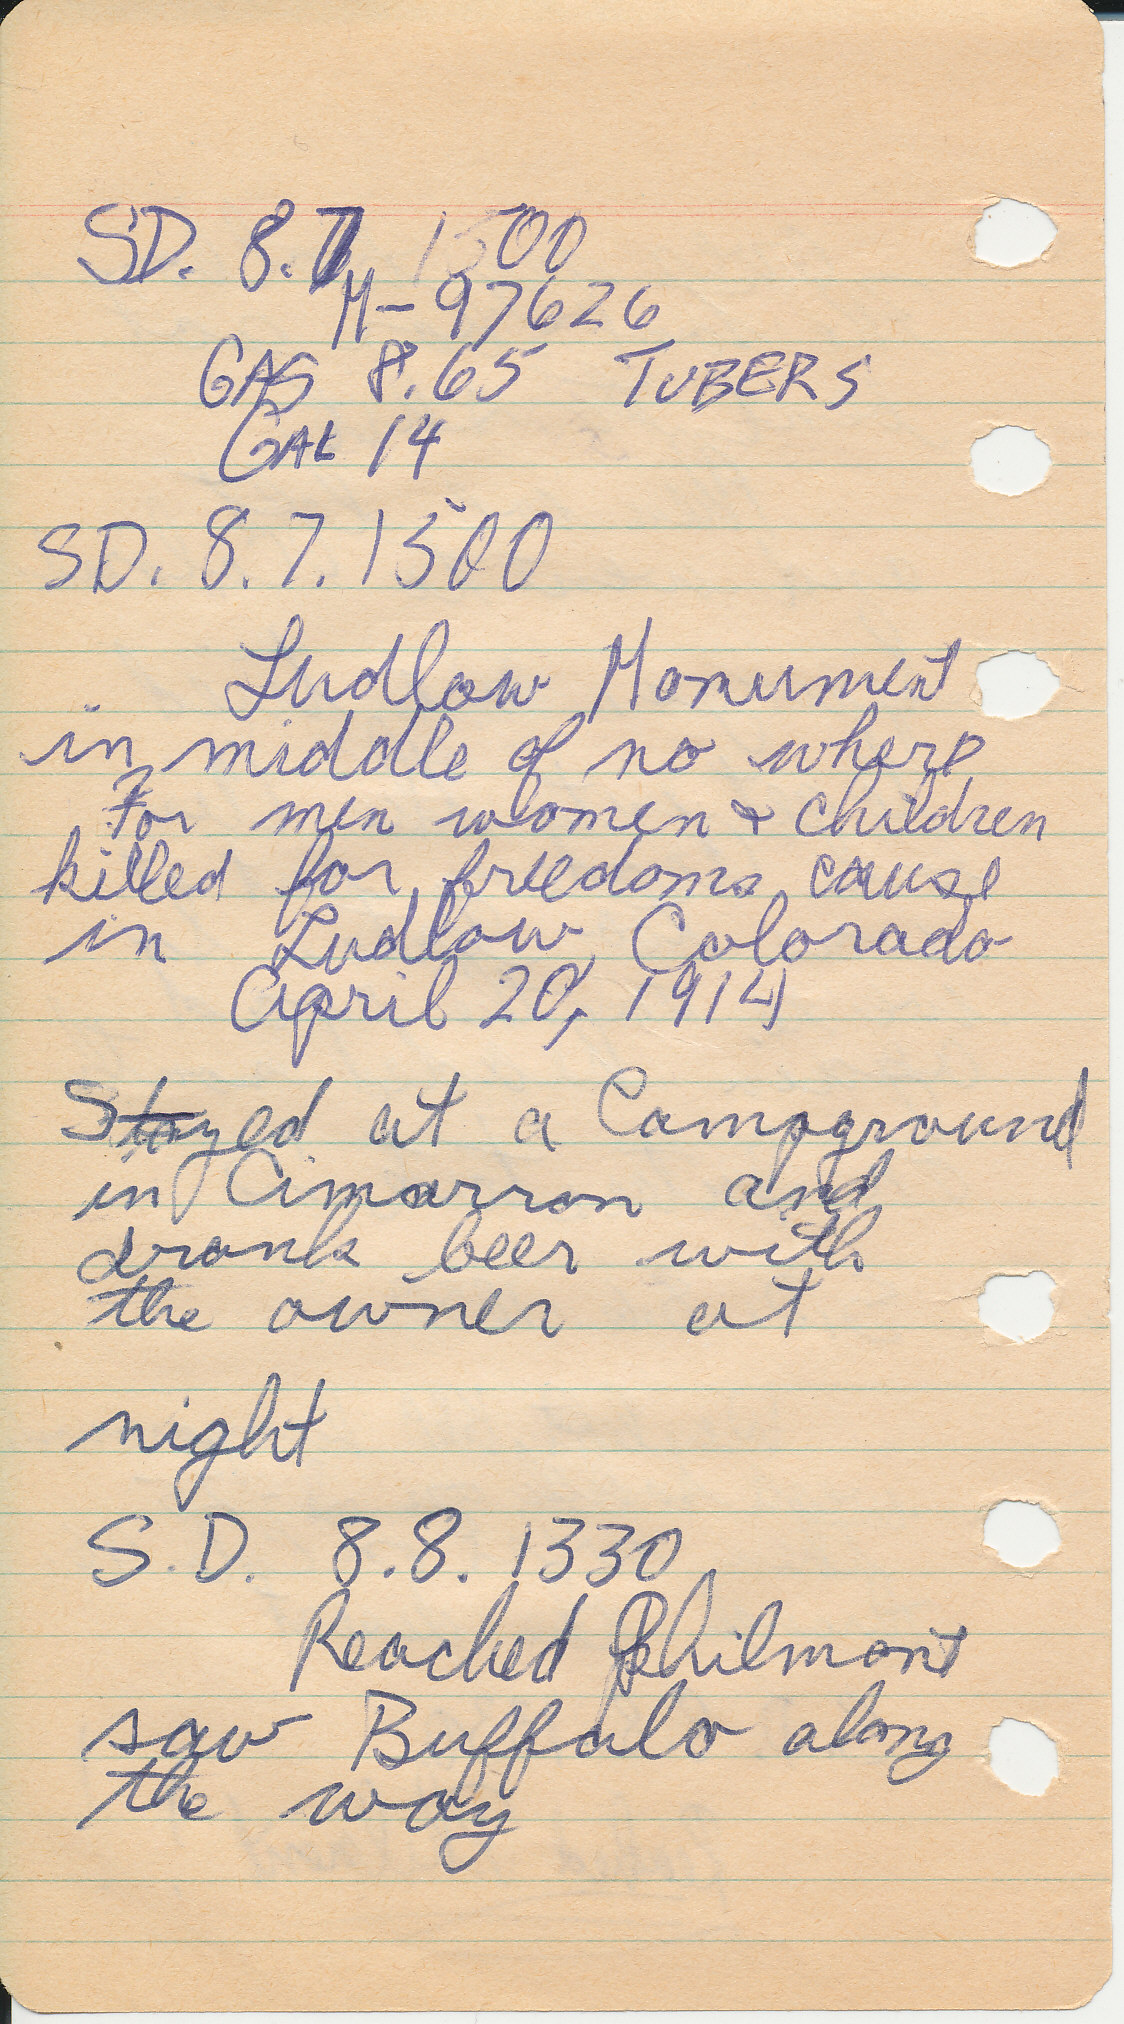 SD. 8.7 1500
M-97626
GAS 8.65 TUBERS
GAL 14
SD. 8.7.1500
Ludlow Monument
in middle of no where
For men women & children
killed for freedoms cause
in Ludlow, Colorado
April 20, 1914
Stayed at a Campground
in Cimarron and
drank beer with
the owner at
night
S.D. 8.8. 1330
Reached Philmont
saw Buffalo along
the way